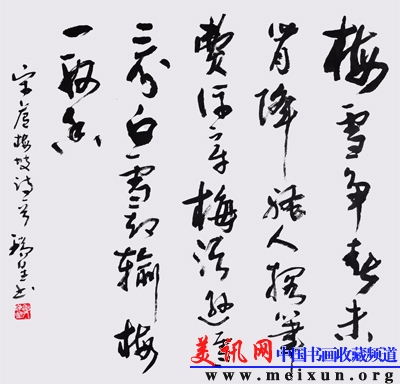 梅雪争春未
肯降骚人搁笔
费评章梅须逊雪
三分白雪却输梅
一段香
宋芦梅坡诗一首 瑞书
美讯网 中国书画收藏频道
www.meixun.org